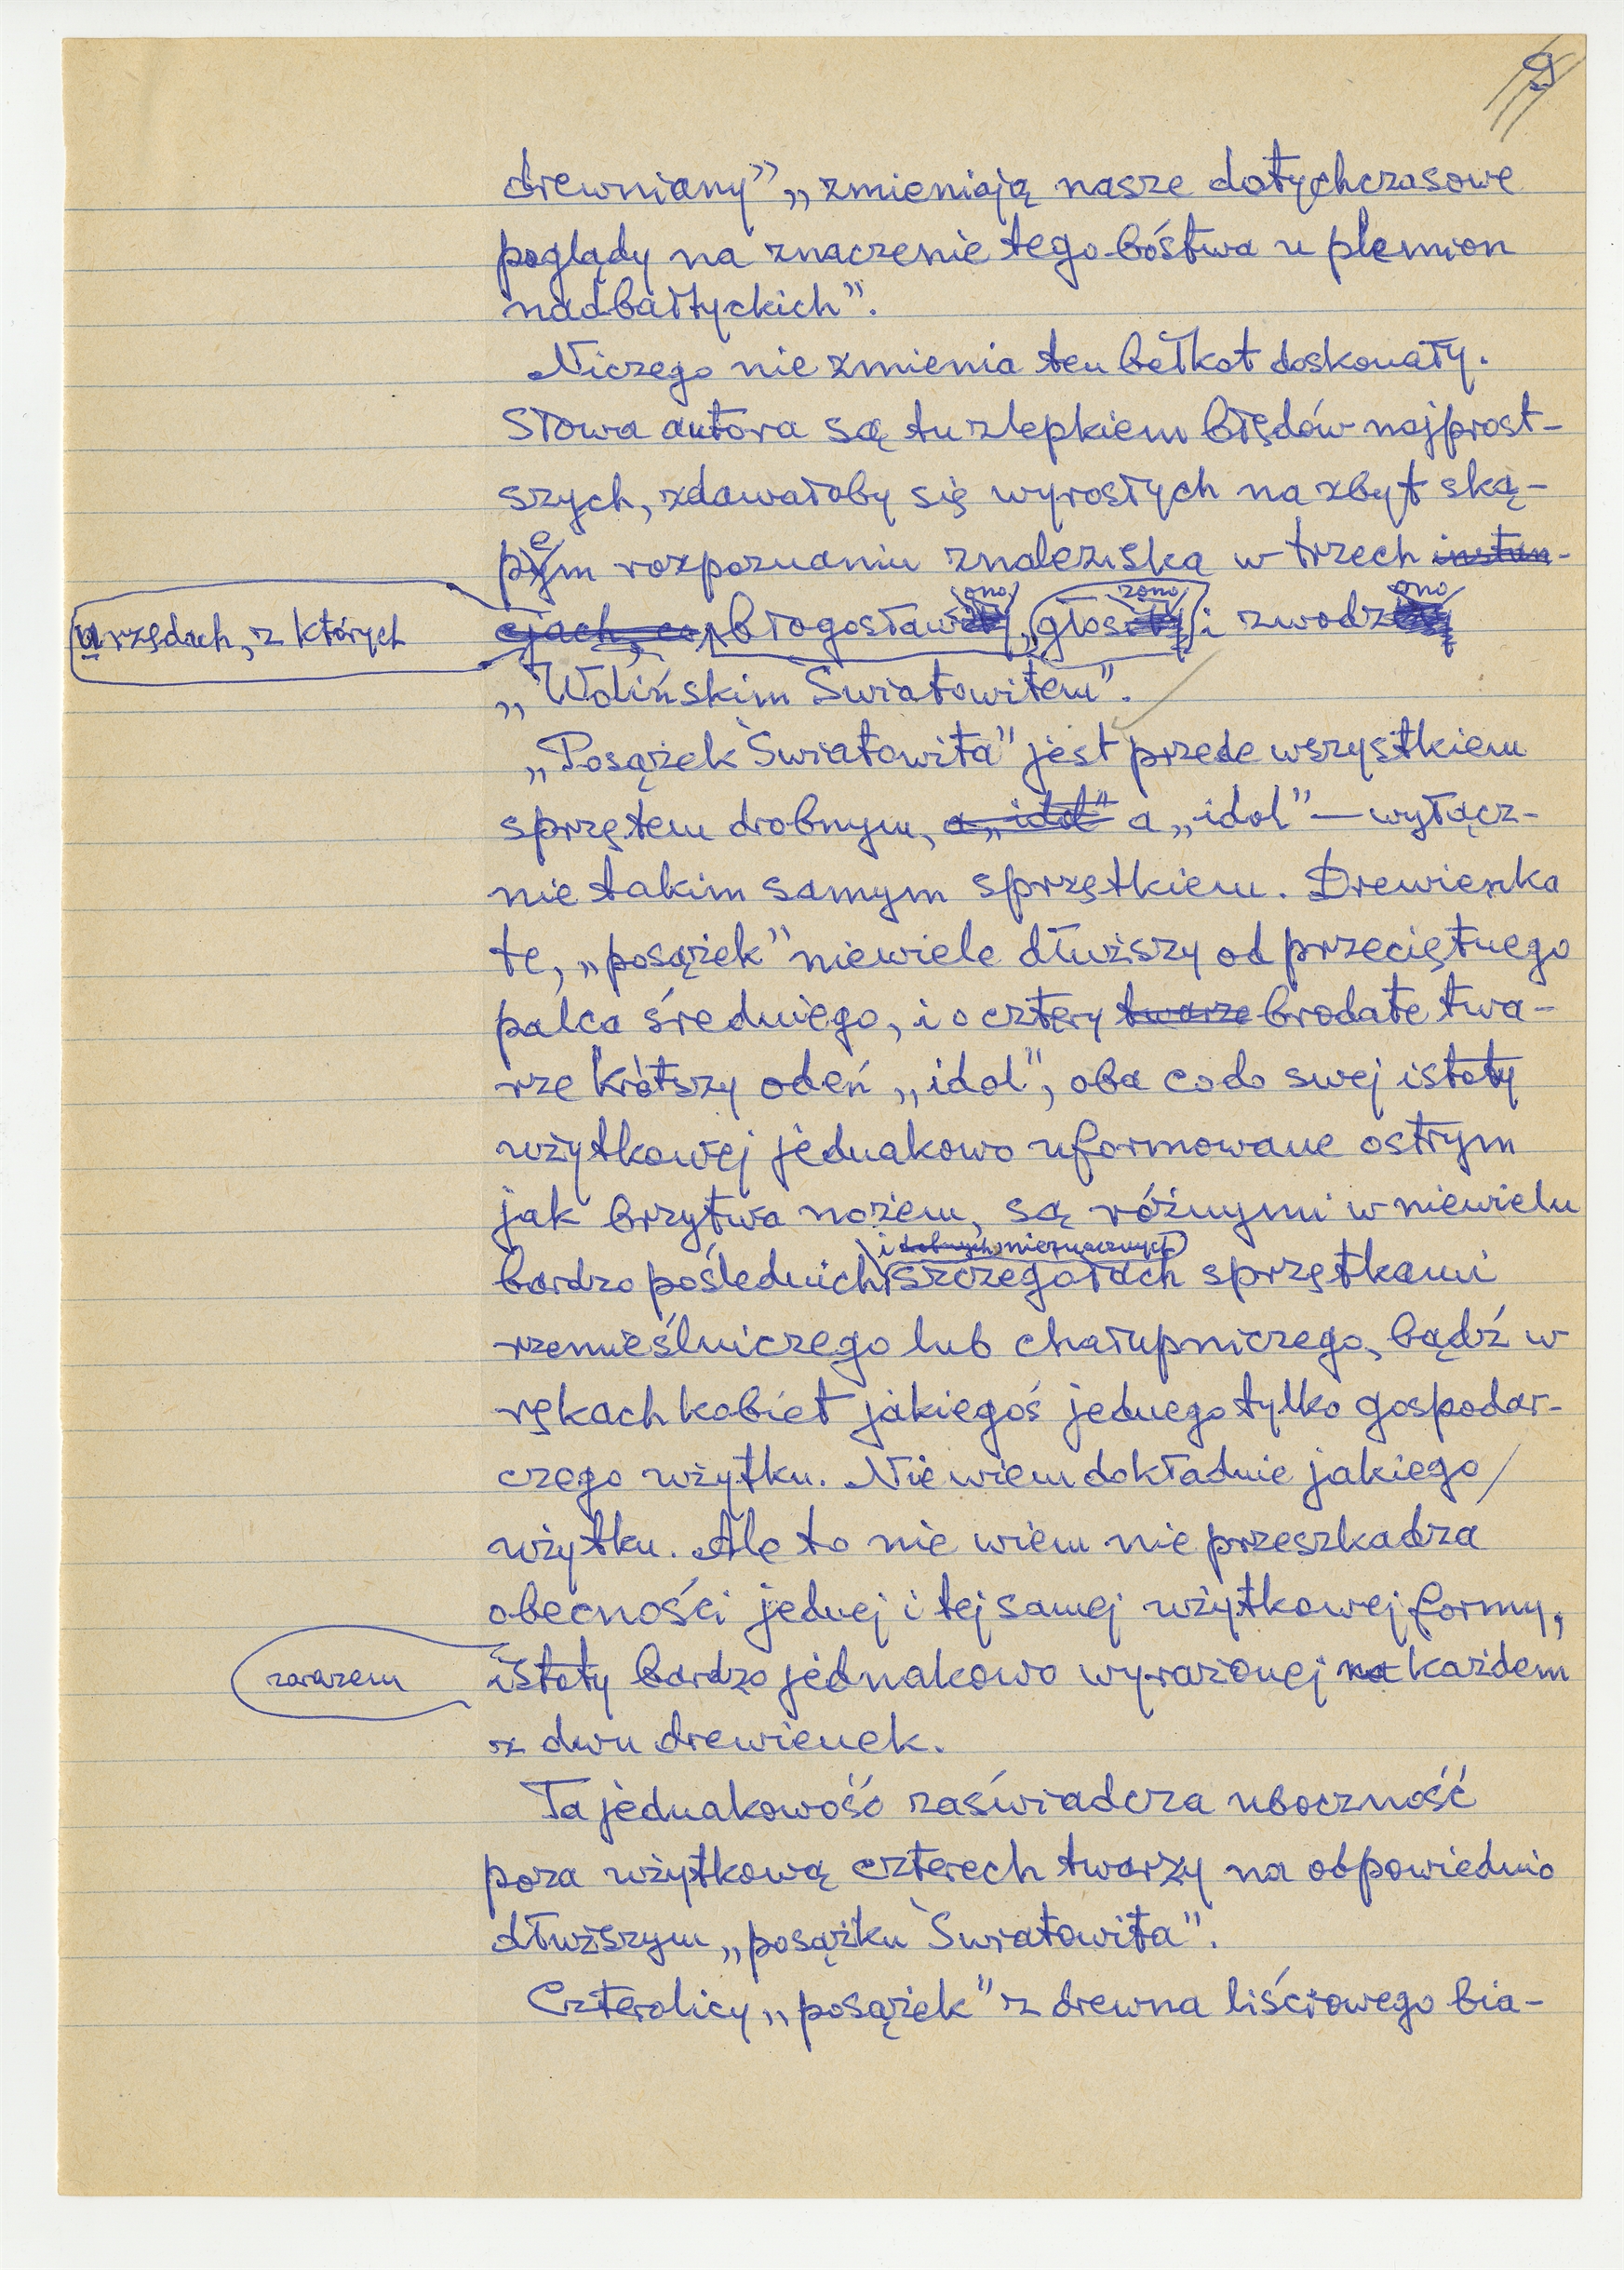 9
drewniany” „zmieniają nasze dotychczasowe
poglądy na znaczenie tego bóstwa u plemion
nadbałtyckich”.
Niczego nie zmienia ten bełkot doskonały.
Słowa autora są tu zlepkiem błędów najprost-
szych, zdawałoby się wyrosłych na zbyt ską-
pem rozpoznaniu znaleziska w trzech instan-
urzędach, z których
cjach, co błogosławiono, głoszono i zwodzono
„Wolińskim Światowitem”.
„Posążek Światowita” jest przede wszystkiem
sprzętem drobnym, a „idol” a „idol” — wyłącz-
nie takim samym sprzętkiem. Drewienka
te, „posążek” niewiele dłuższy od przeciętnego
palca średniego, i o cztery twarze brodate twa-
rze krótszy odeń „idol”, oba co do swej istoty
użytkowej jednakowo uformowane ostrym
jak brzytwa nożem, są różnymi w niewielu
i drobnych nieznacznych
bardzo poślednich szczegółach sprzętkami
rzemieślniczego lub chałupniczego, bądź w
rękach kobiet jakiegoś jednego tylko gospodar-
czego użytku. Nie wiem dokładnie jakiego
użytku. Ale to nie wiem nie przeszkadza
obecności jednej i tej samej użytkowej formy,
zarazem
istoty bardzo jednakowo wyrażonej na każdem
z dwu drewienek.
Ta jednakowość zaświadcza uboczność
poza użytkową czterech twarzy na odpowiednio
dłuższym „posążku Światowita”.
Czterolicy „posążek” z drewna liściowego bia-